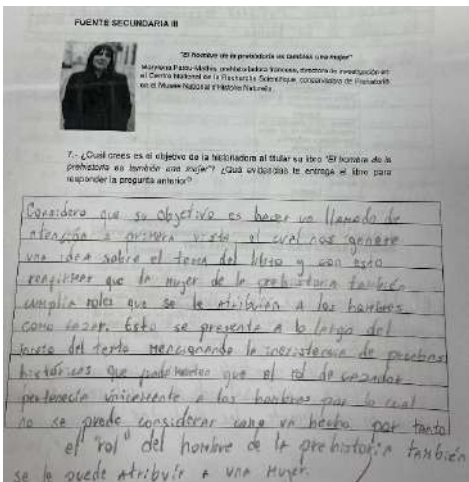 FUENTE SECUNDARIA III
"El hombre de la prehistoria es también una mujer"
Marylène Patou-Mathis, prehistoriadora francesa, directora de investigación en
el Centre National de la Recherche Scientifique, conservadora de Prehistoria
en el Museo National d'Histoire Naturelle.
7.- ¿Cuál crees es el objetivo de la historiadora al titular su libro "El hombre de la
prehistoria es también una mujer"? ¿Qué evidencias te entrega el libro para
responder la pregunta anterior?
Considero que su objetivo es hacer un llamado de
atención a primera vista el cual nos genere
una idea sobre el tema del libro y con esto
reafirmar que la mujer de la prehistoria también
cumplía roles que se le atribuían a los hombres
como cazar. Esto se presenta a lo largo del
del texto mencionando la inexistencia de pruebas
históricas que que el rol de cazador
pertenecía únicamente a los hombres por lo cual
no se puede considerar como un hecho por tanto
el "rol" del hombre de la prehistoria también
se le puede atribuir a una mujer.